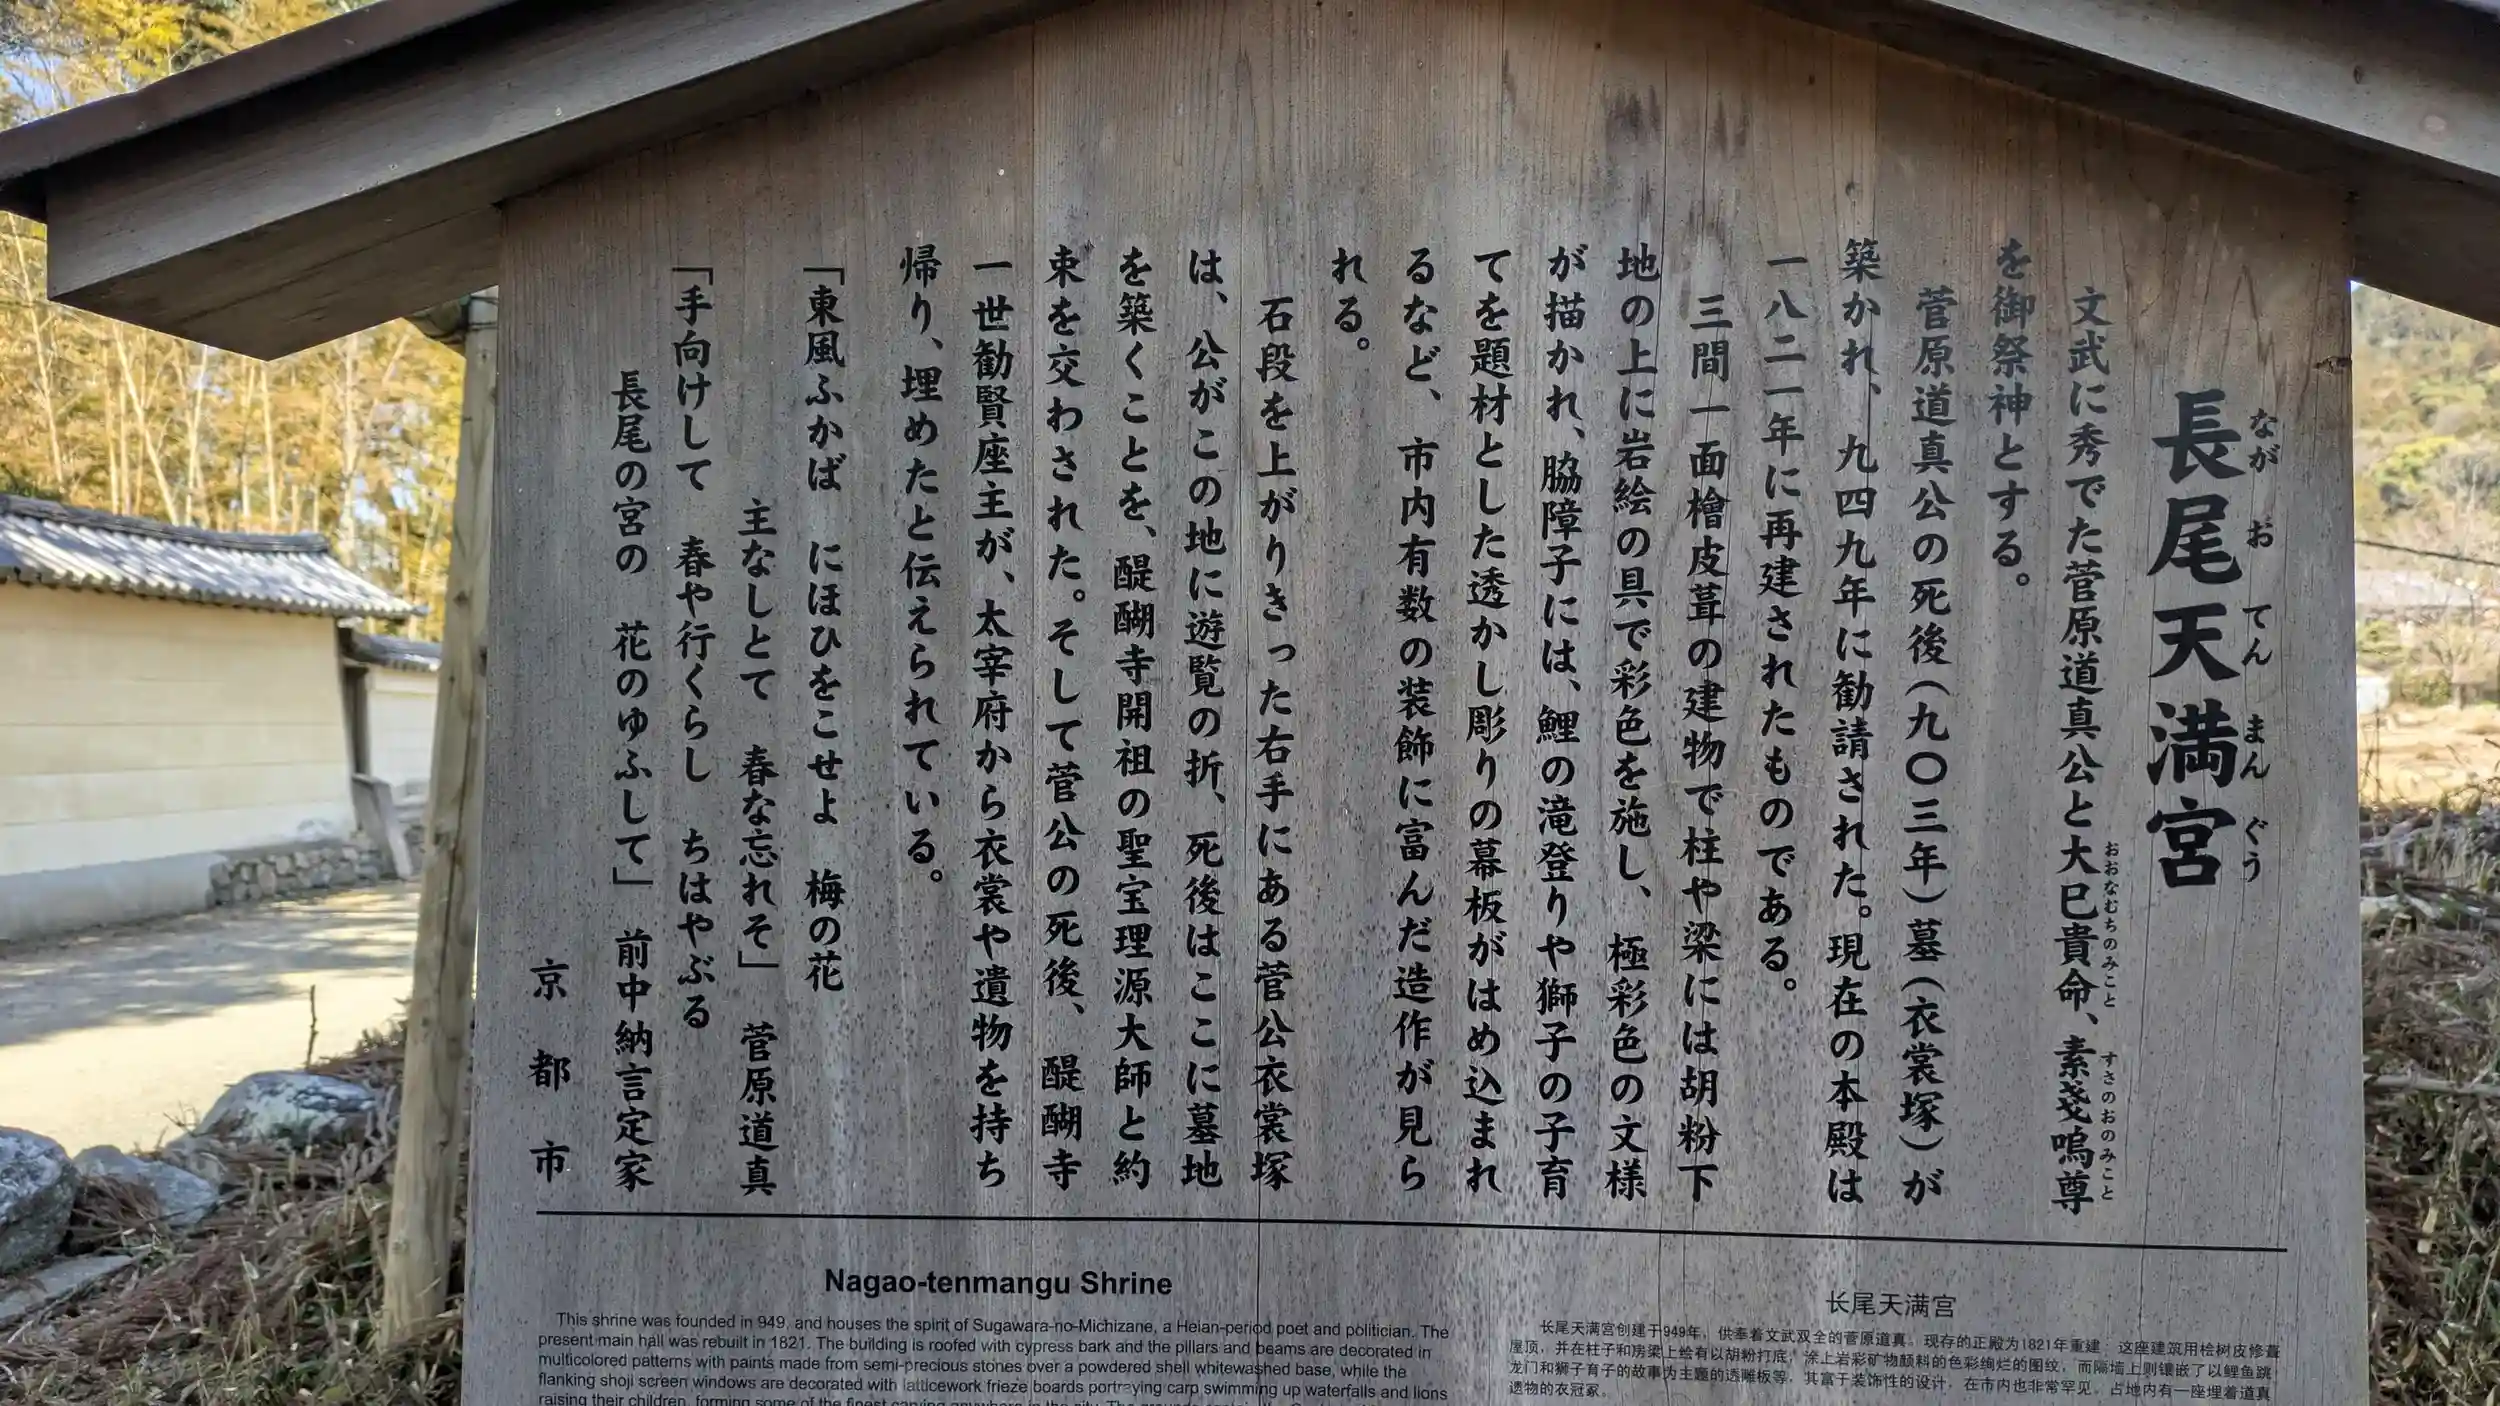 長尾天満宮
ながおてんまんぐう
文武に秀でた菅原道真公と大巳貴命、素戔嗚尊
おおなむちのみこと
すさのおのみこと
を御祭神とする。
菅原道真公の死後(九〇三年)墓(衣裳塚)が
築かれ、九四九年に勧請された。現在の本殿は
一八二一年に再建されたものである。
三間一面檜皮葺の建物で柱や梁には胡粉下
地の上に岩絵の具で彩色を施し、極彩色の文様
が描かれ、脇障子には、鯉の滝登りや獅子の子育
てを題材とした透かし彫りの幕板がはめ込まれ
るなど、市内有数の装飾に富んだ造作が見ら
れる。
石段を上がりきった右手にある菅公衣裳塚
は、公がこの地に遊覧の折、死後はここに墓地
を築くことを、醍醐寺開祖の聖宝理源大師と約
束を交わされた。そして菅公の死後、醍醐寺
一世勧賢座主が、太宰府から衣裳や遺物を持ち
帰り、埋めたと伝えられている。
「東風ふかば にほひをこせよ 梅の花
主なしとて 春な忘れそ」 菅原道真
「手向けして 春や行くらし ちはやぶる
長尾の宮の 花のゆふして」 前中納言定家
京都市
Nagao-tenmangu Shrine
This shrine was founded in 949, and houses the spirit of Sugawara-no-Michizane, a Heian-period poet and politician. The
present main hall was rebuilt in 1821. The building is roofed with cypress bark and the pillars and beams are decorated in
multicolored patterns with paints made from semi-precious stones over a powdered shell whitewashed base, while the
flanking shoji screen windows are decorated with latticework frieze boards portraying carp swimming up waterfalls and lions
raising their children, forming some of the finest carving anywhere in the city. The grounds
长尾天满宫
长尾天满宫创建于949年，供奉着文武双全的菅原道真。现存的正殿为1821年重建，这座建筑用桧树皮修葺
屋顶，并在柱子和房梁上绘有以胡粉打底，涂上岩彩矿物颜料的色彩绚烂的图纹，而隔墙上则镶嵌了以鲤鱼跳
龙门和狮子育子的故事为主题的透雕板等，其富于装饰性的设计，在市内也非常罕见。占地内有一座埋着道真
遗物的衣冠冢。